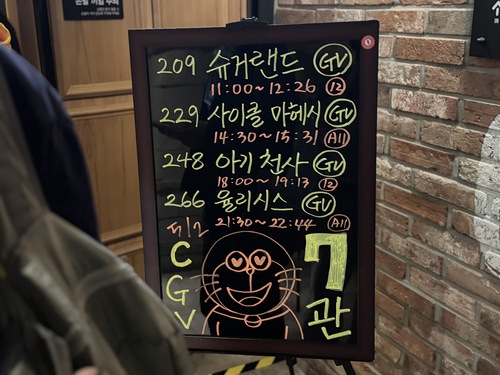 209 슈거랜드 GV
11:00~12:26 12
229 사이클 마헤시 GV
14:30~15:31 All
248 아기 천사 GV
18:00~19:13 12
266 율리시스 GV
21:30~22:44 All
CGV
7관